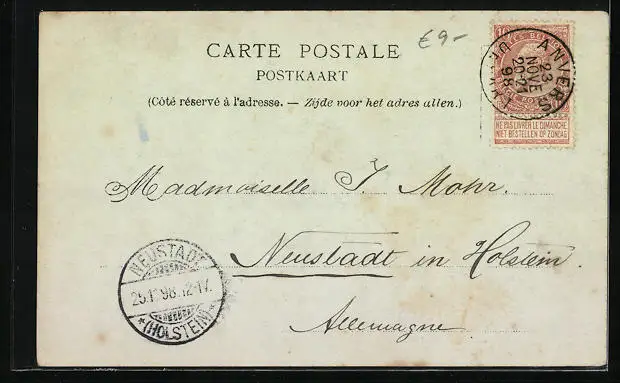 €9-
CARTE POSTALE
POSTKAART
(Côté réservé à l'adresse. — Zijde voor het adres allen.)
ANVERS
23
NOVE
20-21
98
NE PAS LIVRER LE DIMANCHE
NIET BESTELLEN OP ZONDAG
Madmoiselle J Mohr.
Neustadt in Holstein
Allemagne
NEUSTADT
25.11.98.12-1N.
*(HOLSTEIN)*